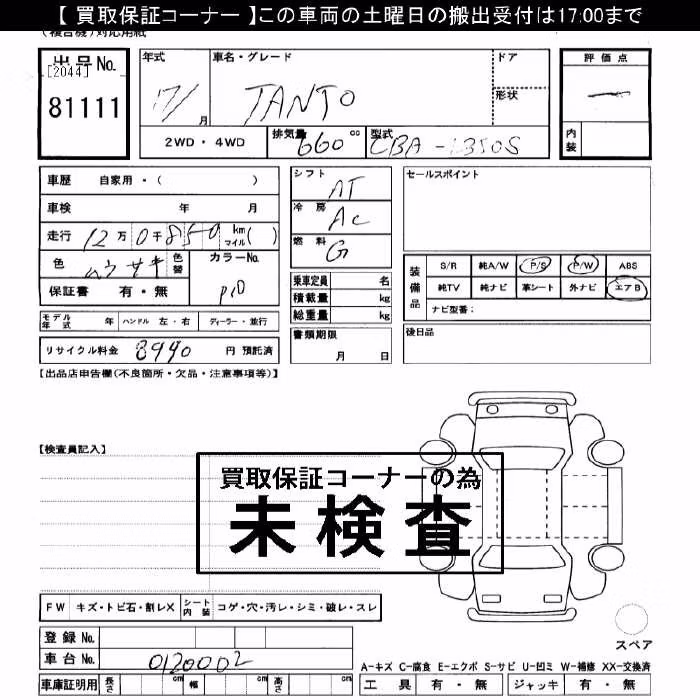 【 買取保証コーナー 】この車両の土曜日の搬出受付は17:00まで
(複合機)対応用紙
出品No. 年式 車名・グレード ドア 評価点
[2044]
81111 17/ 月 TANTO 形状 —
2WD・4WD 排気量 660 cc 型式 CBA-L350S 内装
車歴 自家用・( ) シフト AT セールスポイント
車検 年 月 冷房 AC
走行 12万0千850 km マイル ( ) 燃料 G
色 ムラサキ 色替 カラーNo. 装備品 S/R 純A/W P/S P/W ABS
保証書 有・無 P10 乗車定員 名 純TV 純ナビ 革シート 外ナビ エアB
積載量 kg ナビ型番:
モデル年式 年 ハンドル 左・右 ディーラー・並行 総重量 kg
リサイクル料金 8990 円 預託済 書類期限 月 日 後日品
【出品店申告欄(不良箇所・欠品・注意事項等)】
【検査員記入】
買取保証コーナーの為
未検査
FW キズ・トビ石・割レX シート内装 コゲ・穴・汚レ・シミ・破レ・スレ
登録No.
スペア
車台No. 0120002
A-キズ C-腐食 E-エクボ S-サビ U-凹ミ W-補修 XX-交換済
車庫証明用 長さ cm 幅 cm 高さ cm 工具 有・無 ジャッキ 有・無